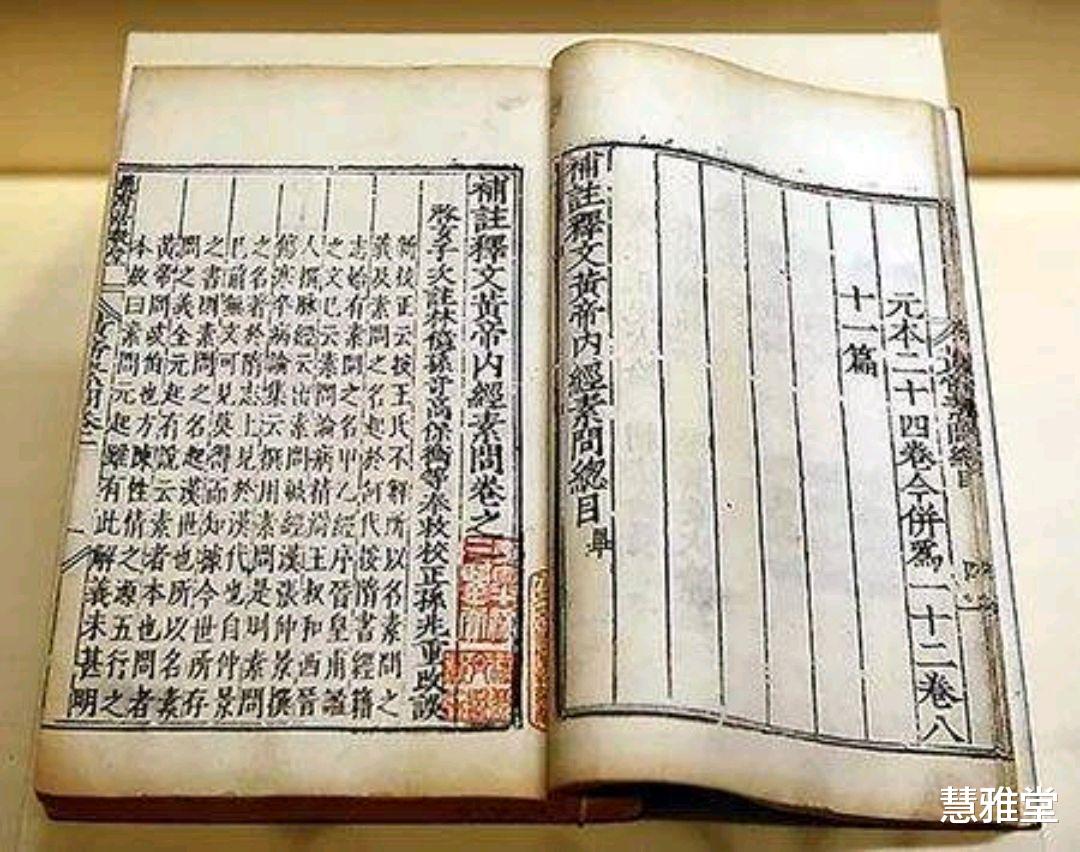 元本二十四卷今併爲一十二卷八
十一篇
補註釋文黃帝內經素問總目畢
補註釋文黃帝內經素問卷之一
啓玄子次註林億孫奇高保衡等奉敕校正孫兆重改誤
新校正云按王氏不解所以名素問之
義及素問之名起於何代按隋書經籍
志始有素問之名甲乙經序晉皇甫謐
之文已云素問論病精辨王叔和西晉
人撰脉經云出素問鍼經漢張仲景撰
傷寒卒病論集云撰用素問是則素問
之名著於隋志上見於漢代也自仲景
已前無文可見莫得而知據今世所存
之書則素問之名起漢世也所以名素
問之義全元起有說云素者本也問者
黃帝問岐伯也方陳性情之源五行之
本故曰素問元起雖有此解義未甚明
慧雅堂